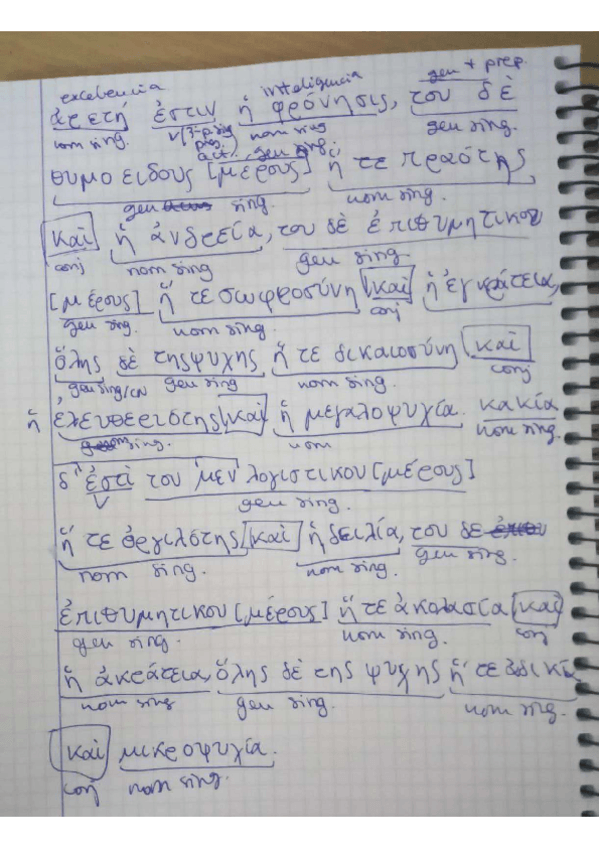 excelencia inteligencia gen + prep.
ἀρετή ἐστιν ἡ φρόνησις, του δὲ
nom sing. V (3ª p. sing pres. act. nom sing gen sing.
θυμοειδους [μέρους] ἥ τε πραότης,
gen sing. nom sing.
καὶ ἡ ἀνδρεία, του δὲ ἐπιθυμητικου
conj nom sing gen sing.
[μέρους] ἥ τε σωφροσύνη καὶ ἡ ἐγκράτεια,
gen sing. nom sing. conj nom sing.
ὅλης δὲ της ψυχης ἥ τε δικαιοσύνη καὶ
gen sing/CN gen sing. nom sing. conj
ἡ ἐλευθεριότης καὶ ἡ μεγαλοψυχία. κακία
sing. nom nom sing.
δ' ἐστὶ του μεν λογιστικου [μέρους]
V gen sing.
ἥ τε ὀργιλότης καὶ ἡ δειλία, του δε
nom sing. nom sing. gen sing.
ἐπιθυμητικου [μέρους] ἥ τε ἀκολασία καὶ
gen sing. nom sing. conj
ἡ ἀκράτεια, ὅλης δὲ της ψυχης ἥ τε ἀδικία
nom sing gen sing. nom sing.
καὶ μικροψυχία.
conj nom sing.